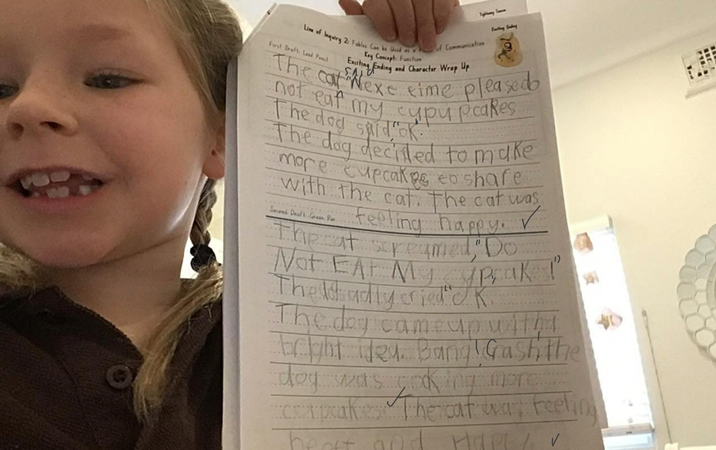 Tightening Tension
Exciting Ending
Line of Inquiry 2: Fables Can be Used as a Form of Communication
Key Concept: Function
First Draft: Lead Pencil
Exciting Ending and Character Wrap Up
The cat said, "Next time please do
not eat my cupupcakes
The dog said, "ok".
The dog decided to make
more cupcakes to share
with the cat. The cat was
Second Draft: Green Pen
feeling happy. ✓
The cat screamed, "Do
Not EAt My cupcake!"
The sadly cried "OK.
The dog came up with a
bright idea. Bang! Crash, the
dog was cooking more
cupcakes. The cat was feeling
and Happy ✓